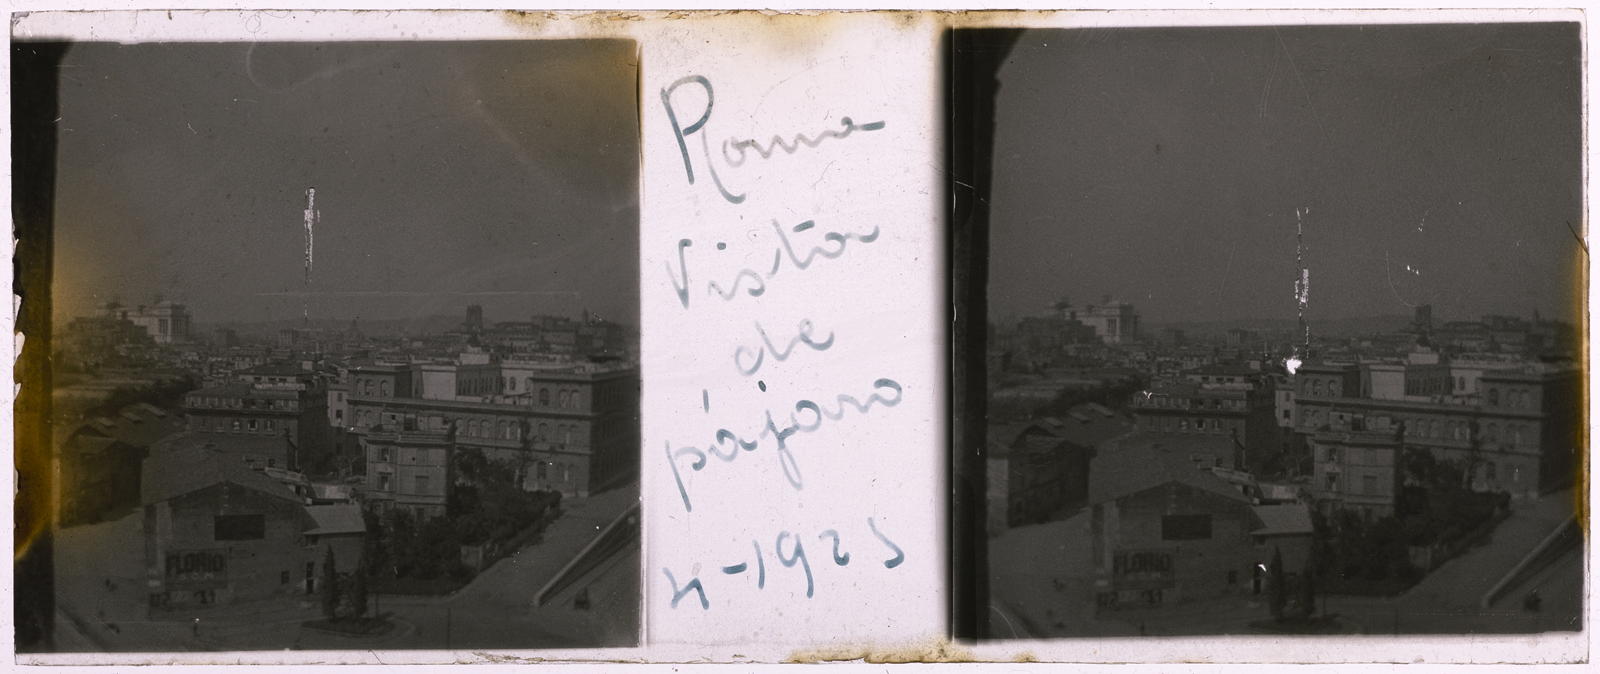 Roma
Vista
de
pájaro
4-1925
FLORIO
FLORIO